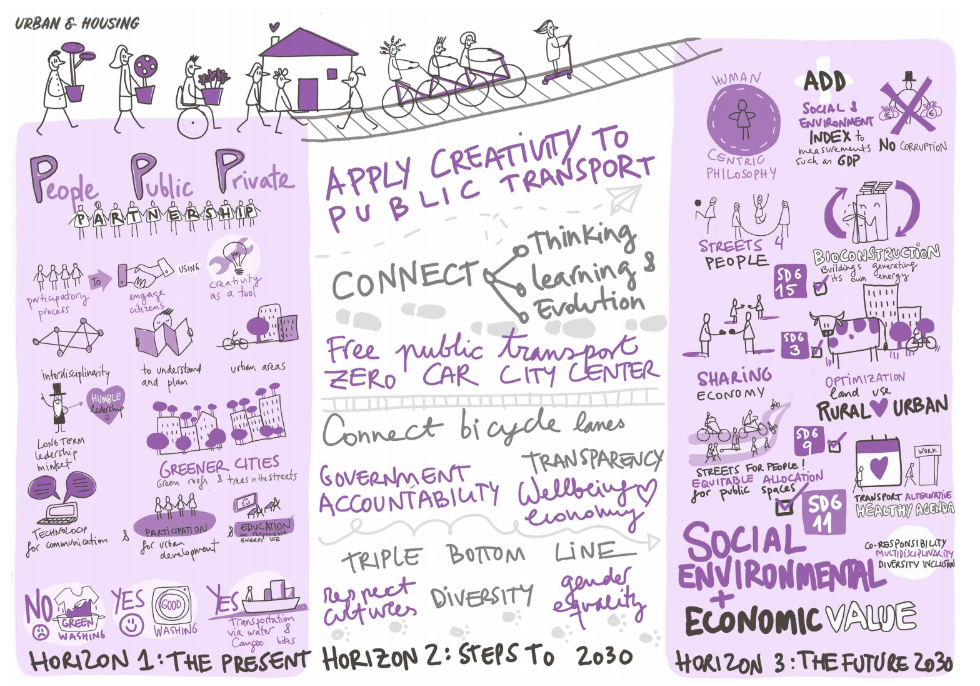 URBAN & HOUSING
People Public Private
PARTNERSHIP
participatory
process
TO
engage
citizens
USING
creativity
as a tool
interdisciplinarity
to understand
and plan
urban areas
HUMBLE
leadership
LONG TERM
leadership
mindset
GREENER CITIES
Green roofs & trees in the streets
TECHNOLOGY
for communication
&
PARTICIPATION
for urban
development
&
EDUCATION
on responsible
energy use
NO
GREEN
WASHING
YES
GOOD
WASHING
YES
Transportation
via water &
bikes
HORIZON 1: THE PRESENT
APPLY CREATIVITY TO
PUBLIC TRANSPORT
CONNECT
Thinking
learning &
Evolution
Free public transport
ZERO CAR CITY CENTER
Connect bicycle lanes
GOVERNMENT
ACCOUNTABILITY
TRANSPARENCY
Wellbeing
economy
TRIPLE BOTTOM LINE
respect
cultures
DIVERSITY
gender
equality
HORIZON 2: STEPS TO 2030
HUMAN
CENTRIC
PHILOSOPHY
ADD
SOCIAL &
ENVIRONMENT
INDEX to
measurements
such as GDP
NO CORRUPTION
STREETS 4
PEOPLE
SDG
15
BIOCONSTRUCTION
Buildings generating
its own energy
SDG
3
SHARING
ECONOMY
OPTIMIZATION
land use
RURAL URBAN
SDG
9
STREETS FOR PEOPLE!
EQUITABLE ALLOCATION
for public spaces
WORK
TRANSPORT ALTERNATIVE
HEALTHY AGENDA
SDG
11
SOCIAL
ENVIRONMENTAL
+
ECONOMIC VALUE
CO-RESPONSIBILITY
MULTIDISCIPLINARITY
DIVERSITY INCLUSION
HORIZON 3: THE FUTURE 2030